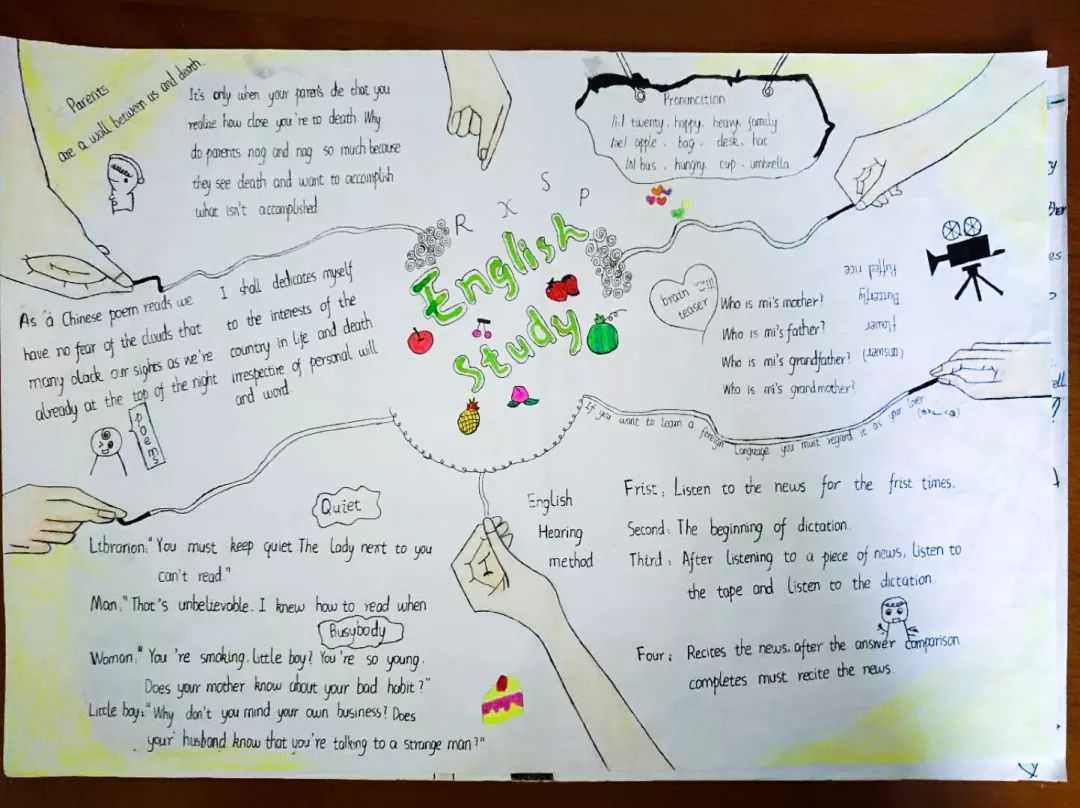 Parents
are a wall between us and death
It's only when your parens die that you
realize how close you're to death. Why
do parents nag and nag so much because
they see death and want to accomplish
what isn't accomplished
Pronancition
/i/ twenty. happy. heavy. family
/æ/ apple. bag. desk. hac
/ʌ/ bus. hungry. cup. umbrella
R X S P
English
study
As a Chinese poem reads we
have no fear of the clouds that
many olack our sights as we're
already at the top of the night
I shall dedicates myself
to the interests of the
country in life and death
irrespective of personal will
and word.
poems
brain
teaser
Who is mi's mother?
Who is mi's father?
Who is mi's grandfather?
Who is mi's grandmother?
(answer)
flower
Butterfly
Puffed rice
If you want to learn a foreign Language you must regard it as your lover
Quiet
Librarian:"You must keep quiet The lady next to you
can't read."
Man:"That's unbelievable. I knew how to read when
Busybody
Woman:"You're smoking, little boy? You're so young.
Does your mother know about your bad habit?"
Little boy:"Why don't you mind your own business? Does
your husband know that you're talking to a strange man?"
English
Hearing
method
Frist: Listen to the news for the frist times.
Second: The beginning of dictation.
Third: After listening to a piece of news, listen to
the tape and listen to the dictation.
Four: Recites the news, after the answer comparison
completes must recite the news.